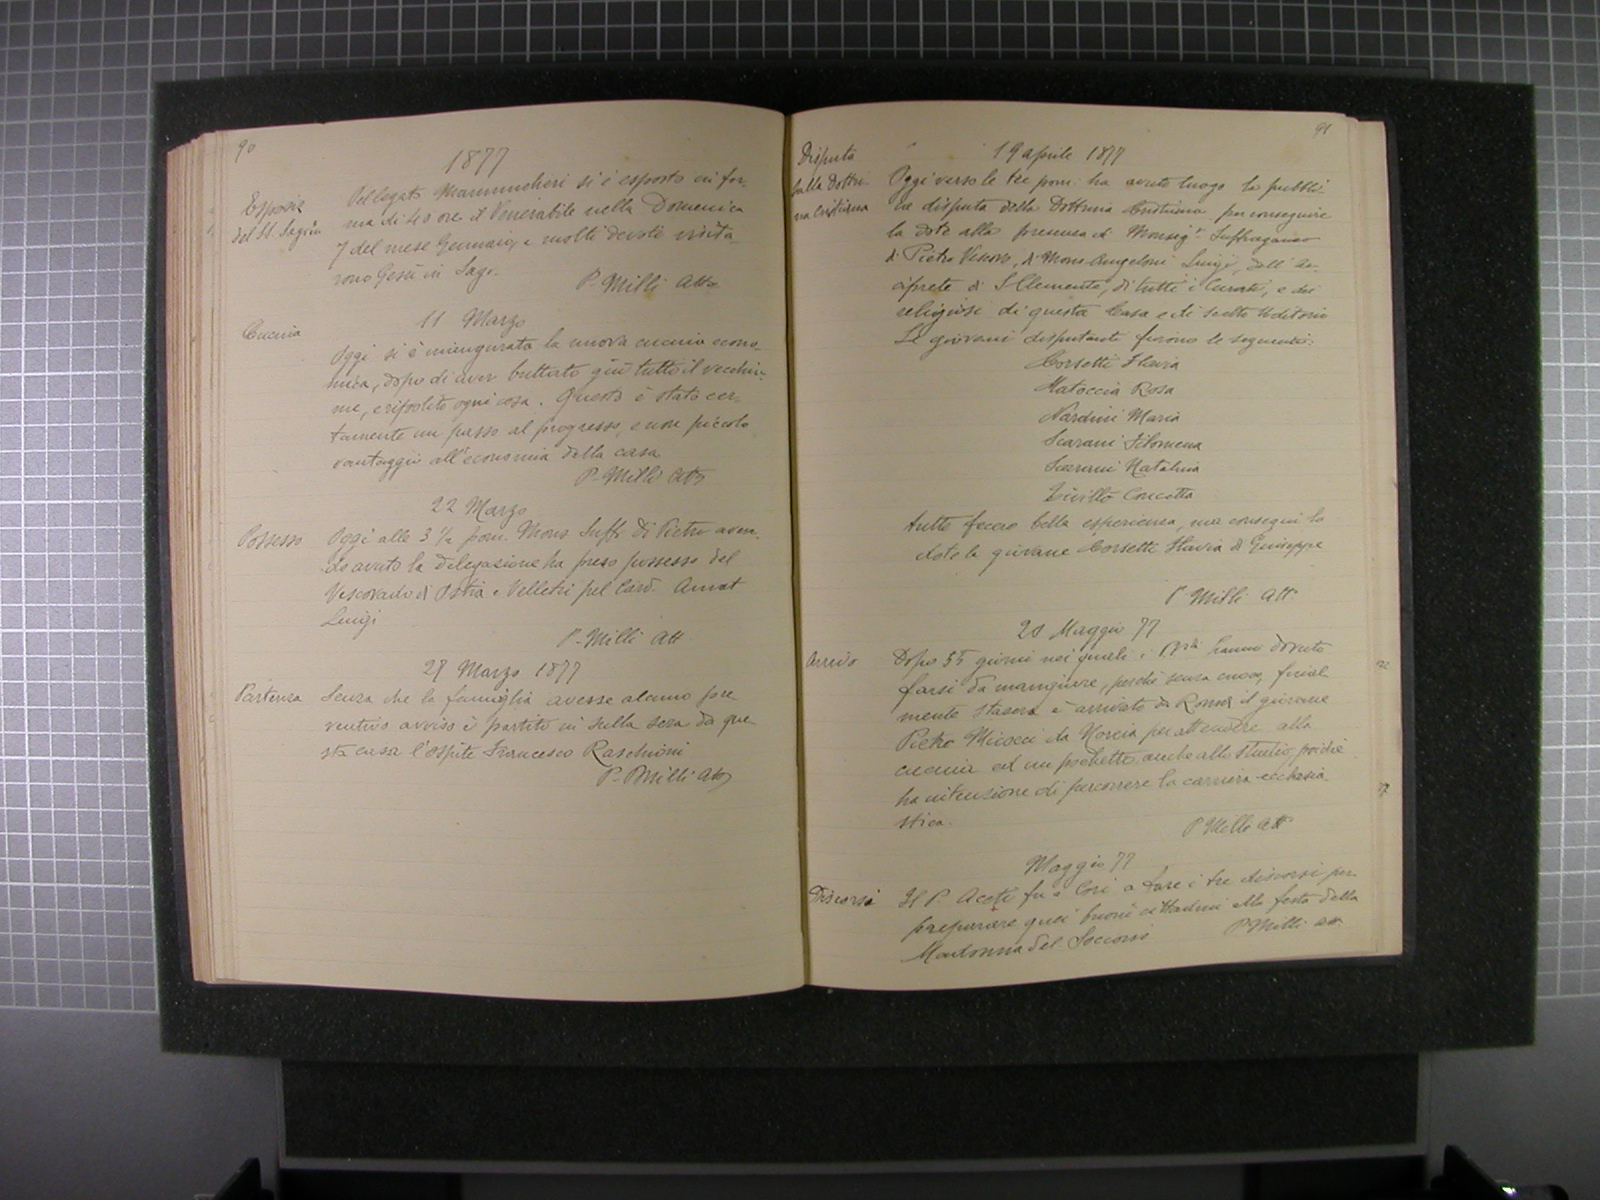 90
1877
Esposiz.
del SS. Sagrto
Pel legato Mammucheri si è esposto in for-
ma di 40 ore il Venerabile nella Domenica
7 del mese Gennaio, e molti devoti visita-
rono Gesù in Sagr.
P. Milli Atto
11 Marzo
Cucina
Oggi si è inaugurata la nuova cucina econo-
mica, dopo di aver buttato giù tutto il vecchiu-
me, e ripolito ogni cosa. Questo è stato cer-
tamente un passo al progresso, e non piccolo
vantaggio all'economia della casa
P. Milli Atto
22 Marzo
Possesso
Oggi alle 3 ½ pom. Mons Suffr. Di Pietro aven-
do avuto la delegazione ha preso possesso del
Vescovado di Ostia e Velletri pel Card. Amat
Luigi
P. Milli Att
28 Marzo 1877
Partenza
Senza che la famiglia avesse alcuno pre
ventivo avviso è partito in sulla sera da que
sta casa l'ospite Francesco Raschioni
P. Milli Atto
91
Disputa
sulla Dottri-
na Cristiana
19 aprile 1877
Oggi verso le tre pom. ha avuto luogo la pubbli
ca disputa della Dottrina Cristiana per conseguire
la dote alla presenza di Monsigr Suffraganeo
di Pietro, di Mons Angeloni Luigi, dell' Ar-
ciprete di S Clemente, di tutti i Curati, e dei
religiosi di questa Casa e di scelto Uditorio
Le giovani disputanti furono le seguenti:
Corsetti Flavia
Matoccia Rosa
Nardini Maria
Scarani Filomena
Scarani Natalina
Concetta
tutte fecero bella esperienza, ma conseguì la
dote la giovane Corsetti Flavia di Giuseppe
P. Milli Att
20 Maggio 77
Arrivo
Dopo 55 giorni nei quali i hanno dovuto
farsi da mangiare, perchè senza cuoco, final
mente stasera è arrivato da Roma il giovane
Pietro Micocci da Norcia per attendere alla
cucina ed un pochetto anche allo studio, poichè
ha intenzione di percorrere la carriera ecclesia
stica.
P Milli Att
Maggio 77
Discorsi
Il P. fu a Cori a fare i tre discorsi per
preparare quei buoni cittadini alla festa della
Madonna del Soccorso
P Milli att